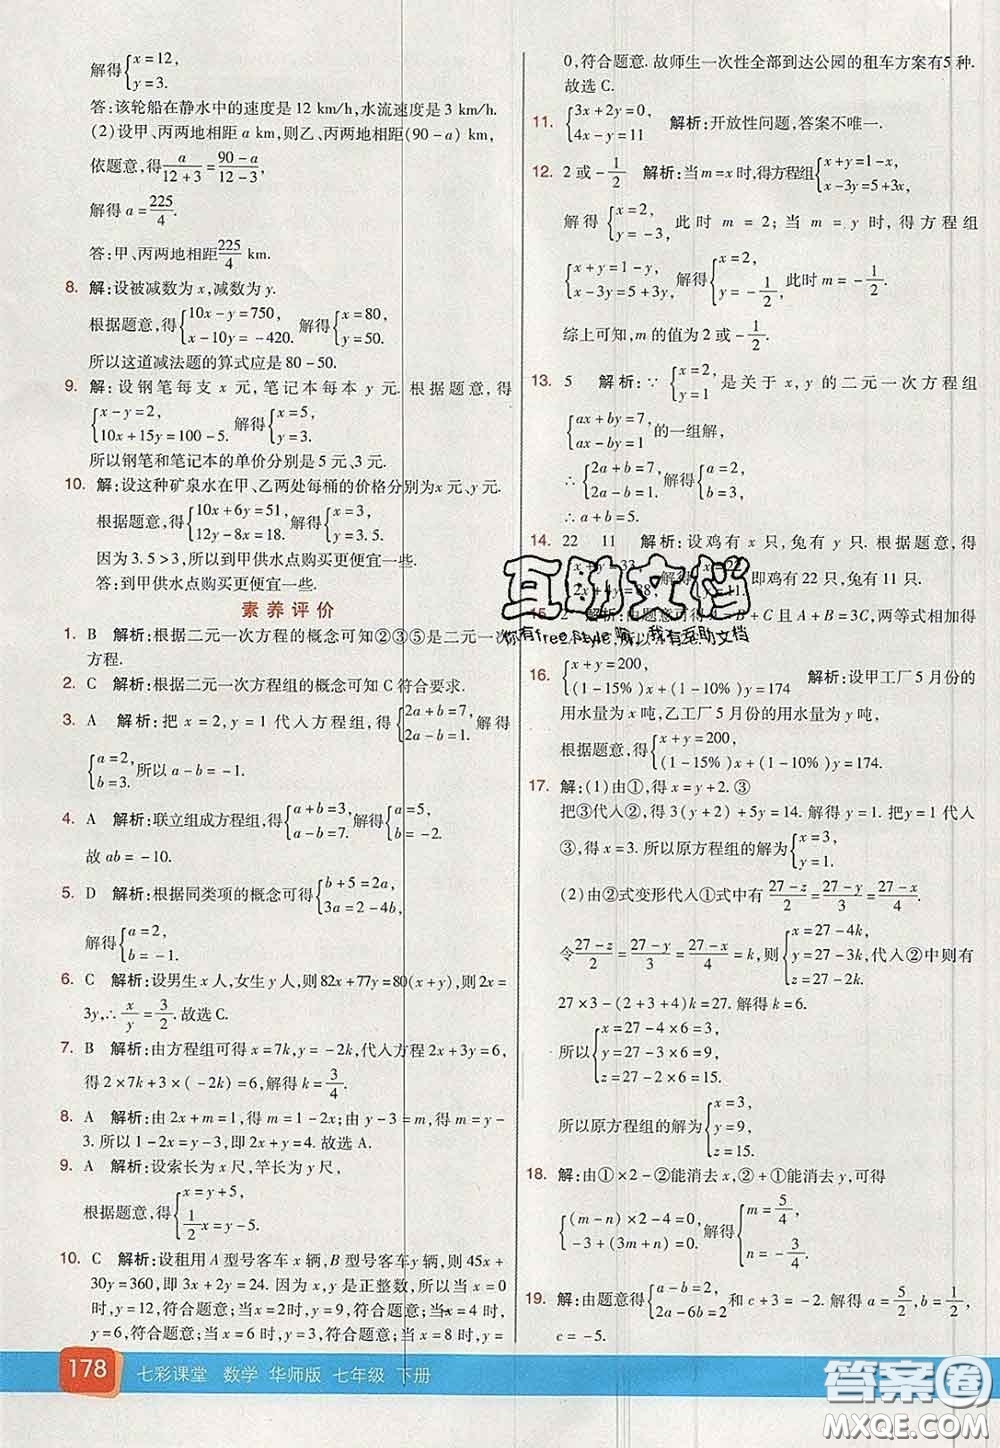 解得{x=12, y=3.
答:该轮船在静水中的速度是 12 km/h,水流速度是 3 km/h.
(2)设甲、丙两地相距 a km,则乙、丙两地相距(90-a) km,
依题意,得a/(12+3)=(90-a)/(12-3),
解得 a=225/4.
答:甲、丙两地相距225/4 km.
8. 解:设被减数为 x,减数为 y.
根据题意,得{10x-y=750, x-10y=-420. 解得{x=80, y=50.
所以这道减法题的算式应是 80-50.
9. 解:设钢笔每支 x 元,笔记本每本 y 元. 根据题意,得
{x-y=2, 10x+15y=100-5. 解得{x=5, y=3.
所以钢笔和笔记本的单价分别是 5 元、3 元.
10. 解:设这种矿泉水在甲、乙两处每桶的价格分别为x元、y元.
根据题意,得{10x+6y=51, 12y-8x=18. 解得{x=3, y=3.5.
因为 3.5>3,所以到甲供水点购买更便宜一些.
答:到甲供水点购买更便宜一些.
素养评价
1. B 解析:根据二元一次方程的概念可知②③⑤是二元一次
方程.
2. C 解析:根据二元一次方程组的概念可知 C 符合要求.
3. A 解析:把 x=2,y=1 代入方程组,得{2a+b=7, 2a-b=1. 解得
{a=2, b=3. 所以 a-b=-1.
4. A 解析:联立组成方程组,得{a+b=3, a-b=7. 解得{a=5, b=-2.
故 ab=-10.
5. D 解析:根据同类项的概念可得{b+5=2a, 3a=2-4b,
解得{a=2, b=-1.
6. C 解析:设男生 x 人,女生 y 人,则 82x+77y=80(x+y),则2x=
3y,∴x/y=3/2. 故选 C.
7. B 解析:由方程组可得 x=7k,y=-2k,代入方程 2x+3y=6,
得 2×7k+3×(-2k)=6,解得 k=3/4.
8. A 解析:由 2x+m=1,得 m=1-2x;由 y-3=m,得 m=y-
3. 所以 1-2x=y-3,即 2x+y=4. 故选 A.
9. A 解析:设索长为 x 尺,竿长为 y 尺,
根据题意,得{x=y+5, 1/2x=y-5.
10. C 解析:设租用 A 型号客车 x 辆,B 型号客车 y 辆,则 45x+
30y=360,即 3x+2y=24. 因为 x,y 是正整数,所以当 x=0
时,y=12,符合题意;当 x=2 时,y=9,符合题意;当 x=4 时,
y=6,符合题意;当 x=6 时,y=3,符合题意;当 x=8 时,y=
0,符合题意. 故师生一次性全部到达公园的租车方案有 5 种.
故选 C.
11. {3x+2y=0, 4x-y=11 解析:开放性问题,答案不唯一.
12. 2 或 -1/2 解析:当 m=x 时,得方程组{x+y=1-x, x-3y=5+3x,
解得{x=2, y=-3, 此时 m=2;当 m=y 时,得方程组
{x+y=1-y, x-3y=5+3y, 解得{x=2, y=-1/2, 此时 m=-1/2.
综上可知,m 的值为 2 或 -1/2.
13. 5 解析:∵{x=2, y=1 是关于 x,y 的二元一次方程组
{ax+by=7, ax-by=1 的一组解,
∴{2a+b=7, 2a-b=1. 解得{a=2, b=3.
∴a+b=5.
14. 22 11 解析:设鸡有 x 只,兔有 y 只. 根据题意,得
解得 即鸡有 22 只,兔有 11 只.
15. 2 解析:由题意可得 A=B+C 且 A+B=3C,两等式相加得
互助文档
你有free style嘛,我有互助文档
16. {x+y=200, (1-15%)x+(1-10%)y=174 解析:设甲工厂 5 月份的
用水量为 x 吨,乙工厂 5 月份的用水量为 y 吨,
根据题意,得{x+y=200, (1-15%)x+(1-10%)y=174.
17. 解:(1)由①,得 x=y+2. ③
把③代入②,得 3(y+2)+5y=14. 解得 y=1. 把 y=1 代入
③,得 x=3. 所以原方程组的解为{x=3, y=1.
(2)由②式变形代入①式中有(27-z)/2=(27-y)/3=(27-x)/4.
令(27-z)/2=(27-y)/3=(27-x)/4=k,则{x=27-4k, y=27-3k, z=27-2k. 代入②中则有
27×3-(2+3+4)k=27. 解得 k=6.
所以{x=27-4×6=3, y=27-3×6=9, z=27-2×6=15.
所以原方程组的解为{x=3, y=9, z=15.
18. 解:由①×2-②能消去 x,②+①能消去 y,可得
19. 解:由题意得{a-b=2, 2a-6b=2 和 c+3=-2. 解得 a=5/2,b=1/2,
c=-5.
178 七彩课堂 数学 华师版 七年级 下册
答案圈
MXQE.COM